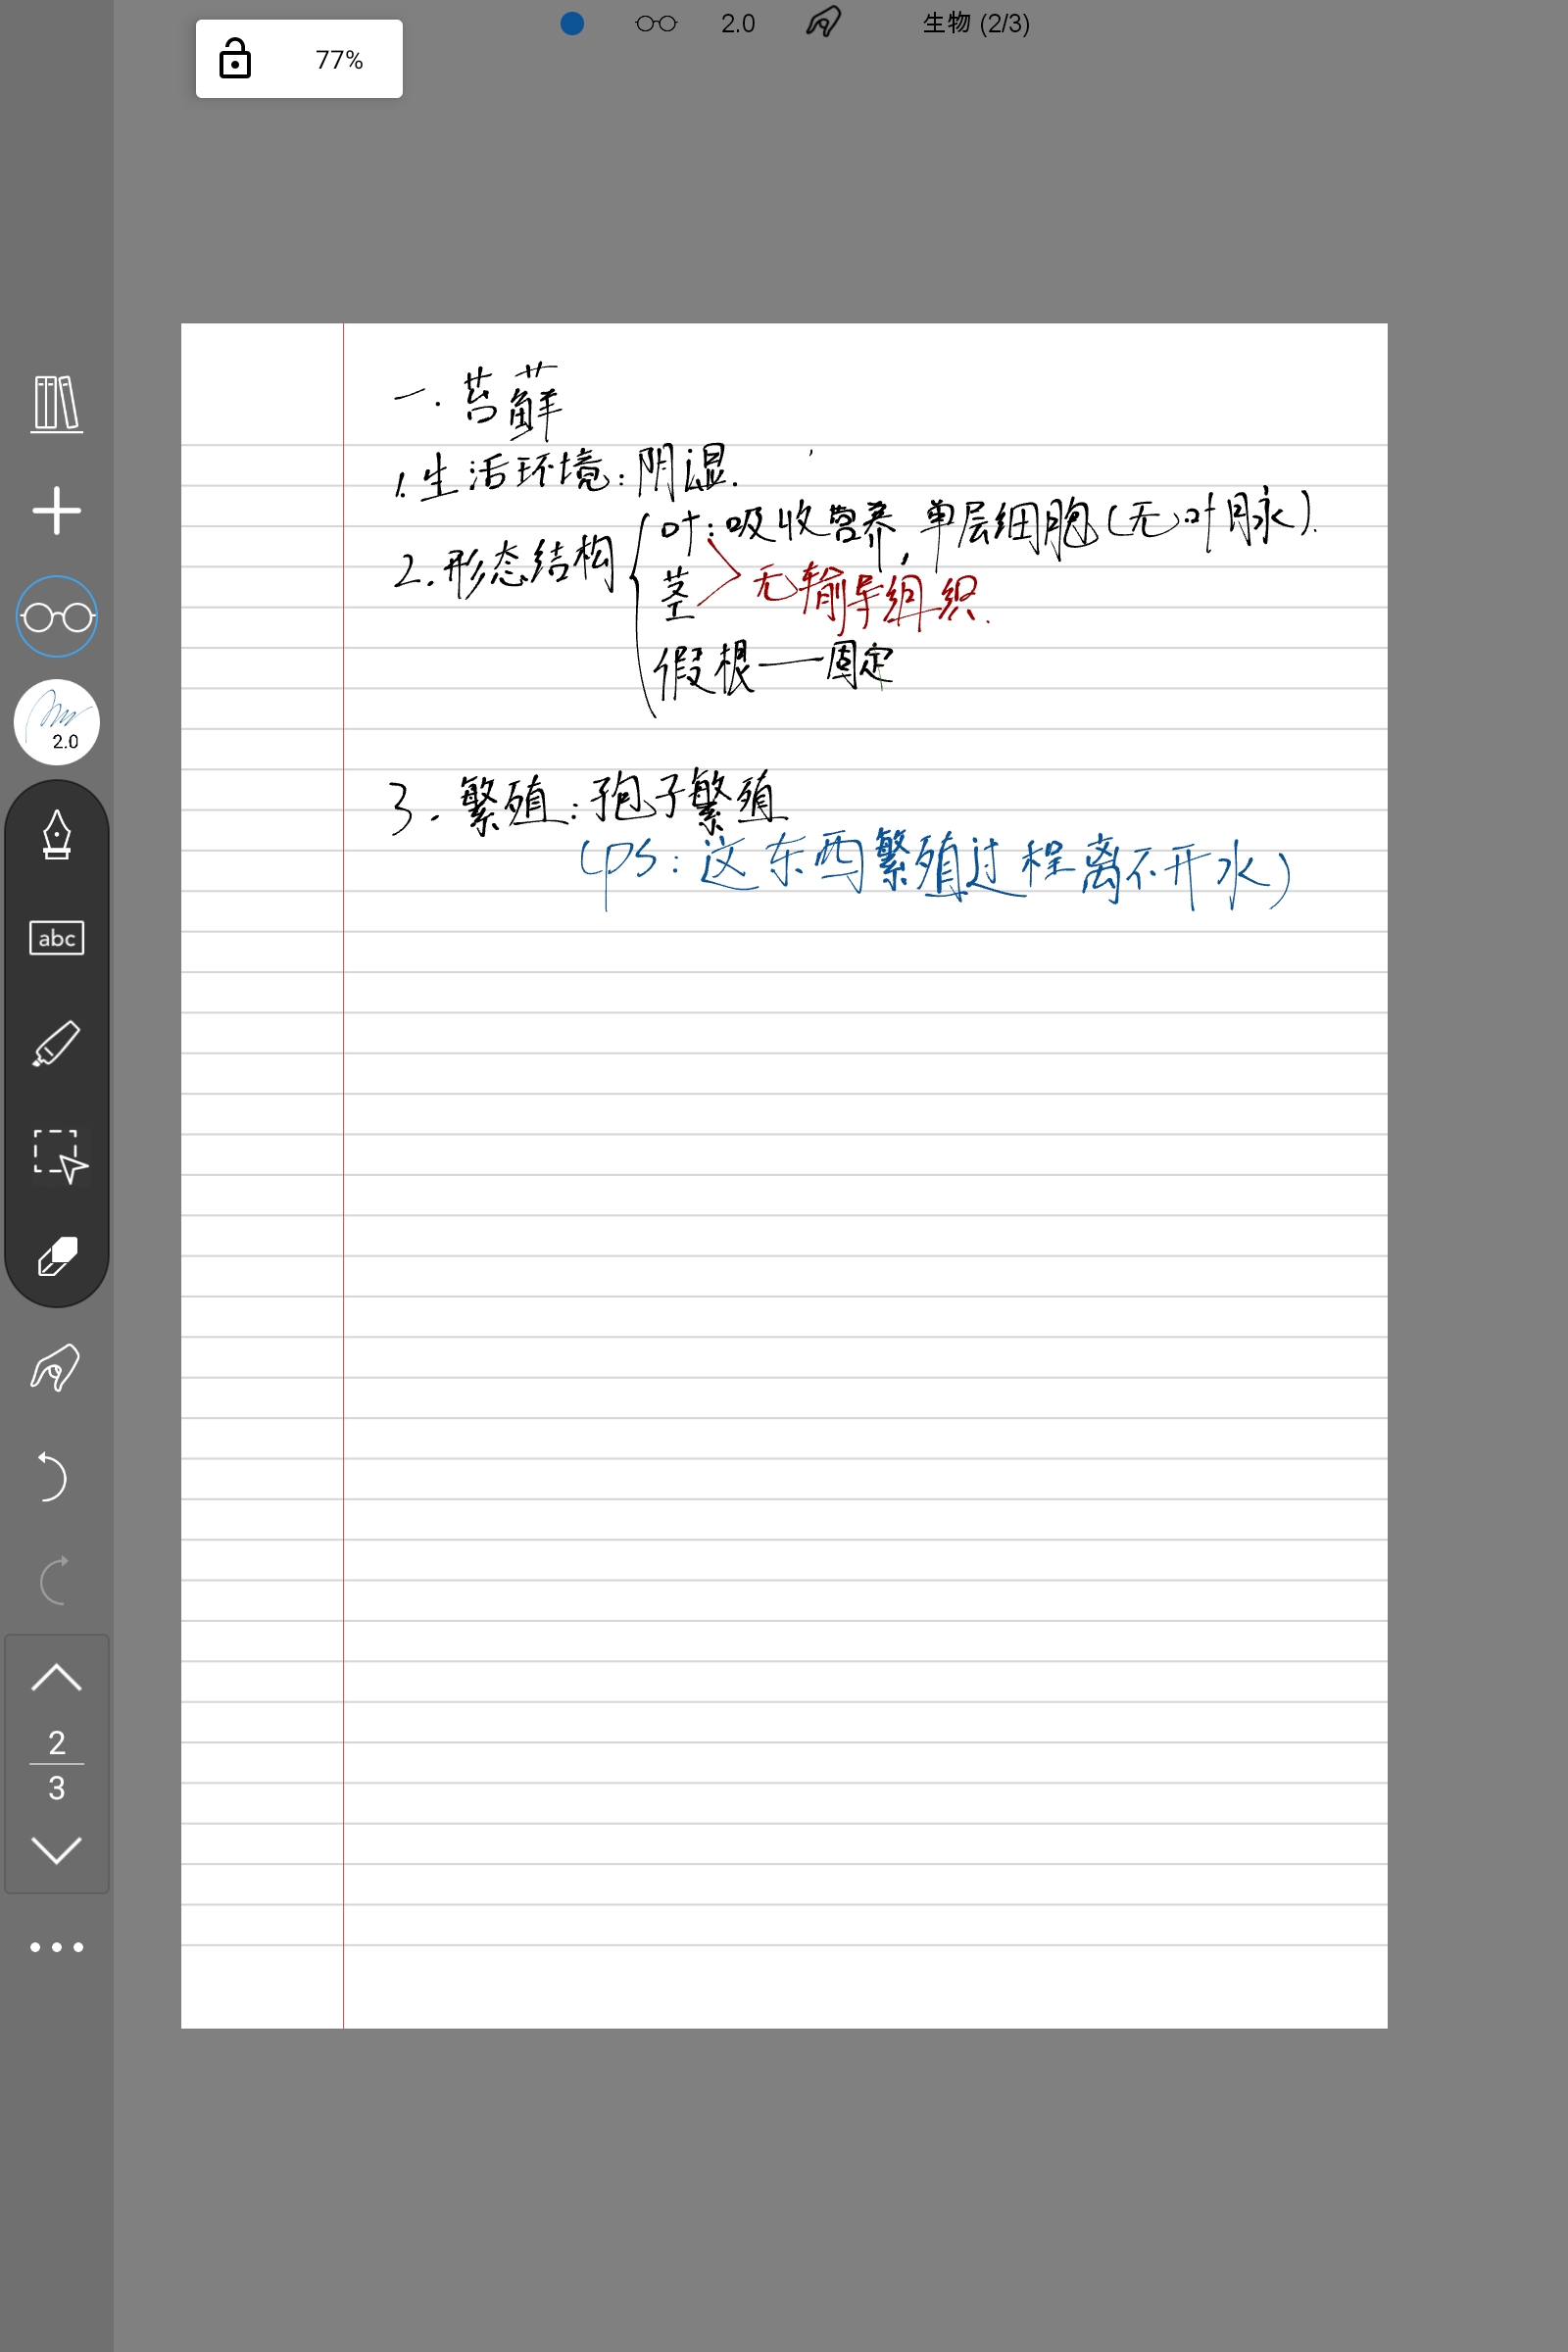 77%
2.0
生物 (2/3)
2.0
abc
2
3
一.苔藓
1.生活环境:阴湿.
叶:吸收营养,单层细胞(无叶脉).
2.形态结构
茎 无输导组织.
假根——固定
3.繁殖:孢子繁殖
(PS:这东西繁殖过程离不开水)